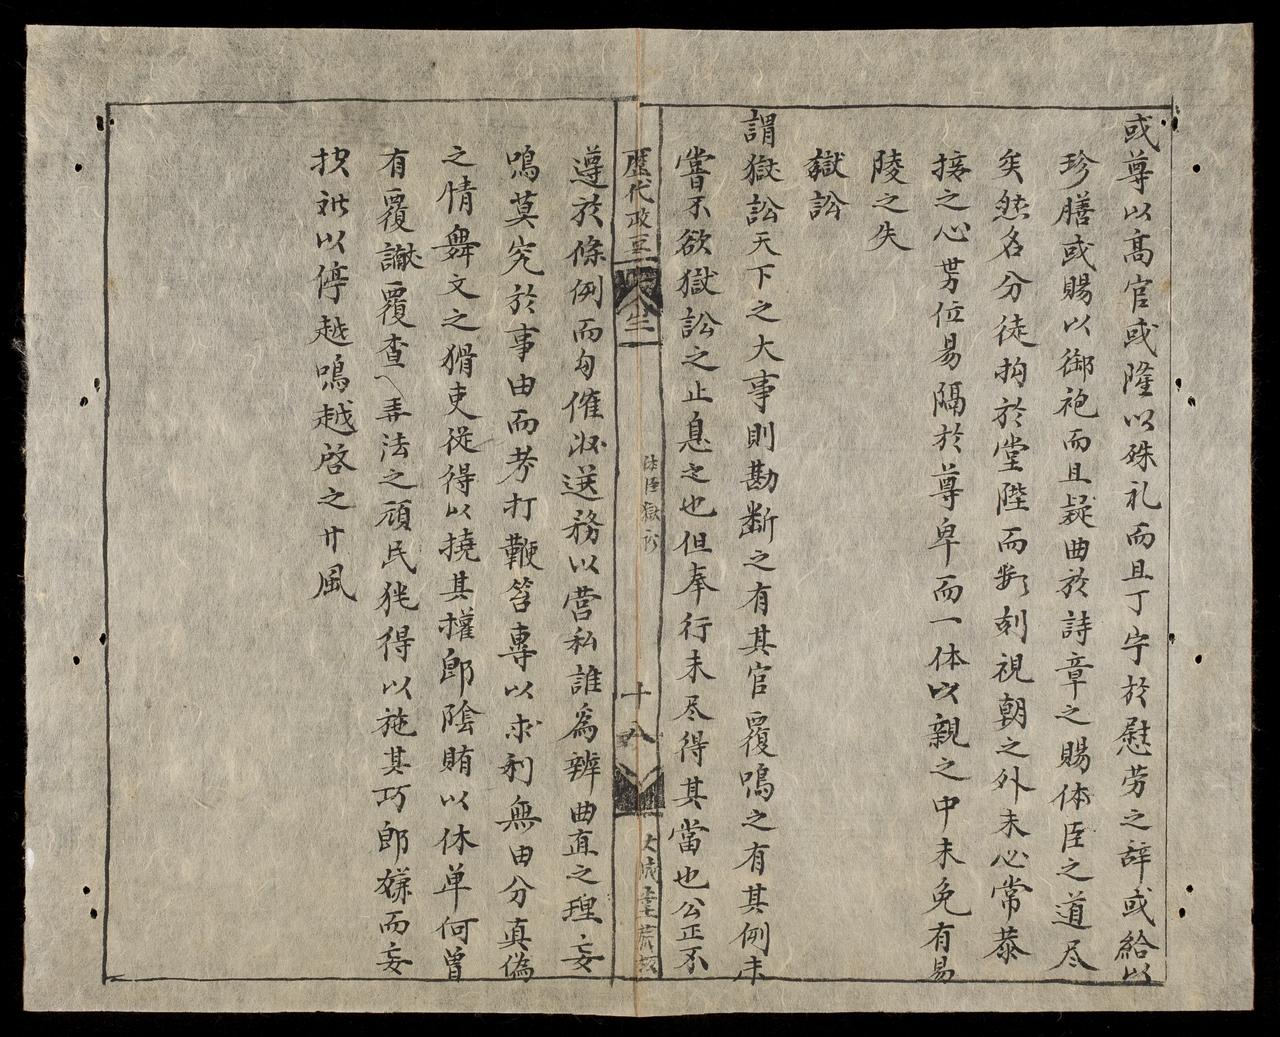 或尊以高官或隆以殊礼而且丁宁於慰劳之辞或給以
珍膳或賜以御袍而且疑曲於詩章之賜体臣之道尽
矣然名分徒拘於堂陛而刻視朝之外未心常恭
接之心势位易隔於尊卑而一体以親之中未免有易
陵之失
獄訟
謂獄訟天下之大事則勘断之有其官覆鳴之有其例未
嘗不欲獄訟之止息之也但奉行未尽得其當也公正不
歷代政
十八
遵於條例而送務以营私誰為辨曲直之理妄
鳴莫究於事由而考打鞭笞專以求利無由分真偽
之情舞文之猾吏從得以撓其權郎陰賄以休单何曾
有覆讞覆查弄法之頑民得以施其巧郎嫌而妄
以停越鳴越啓之风